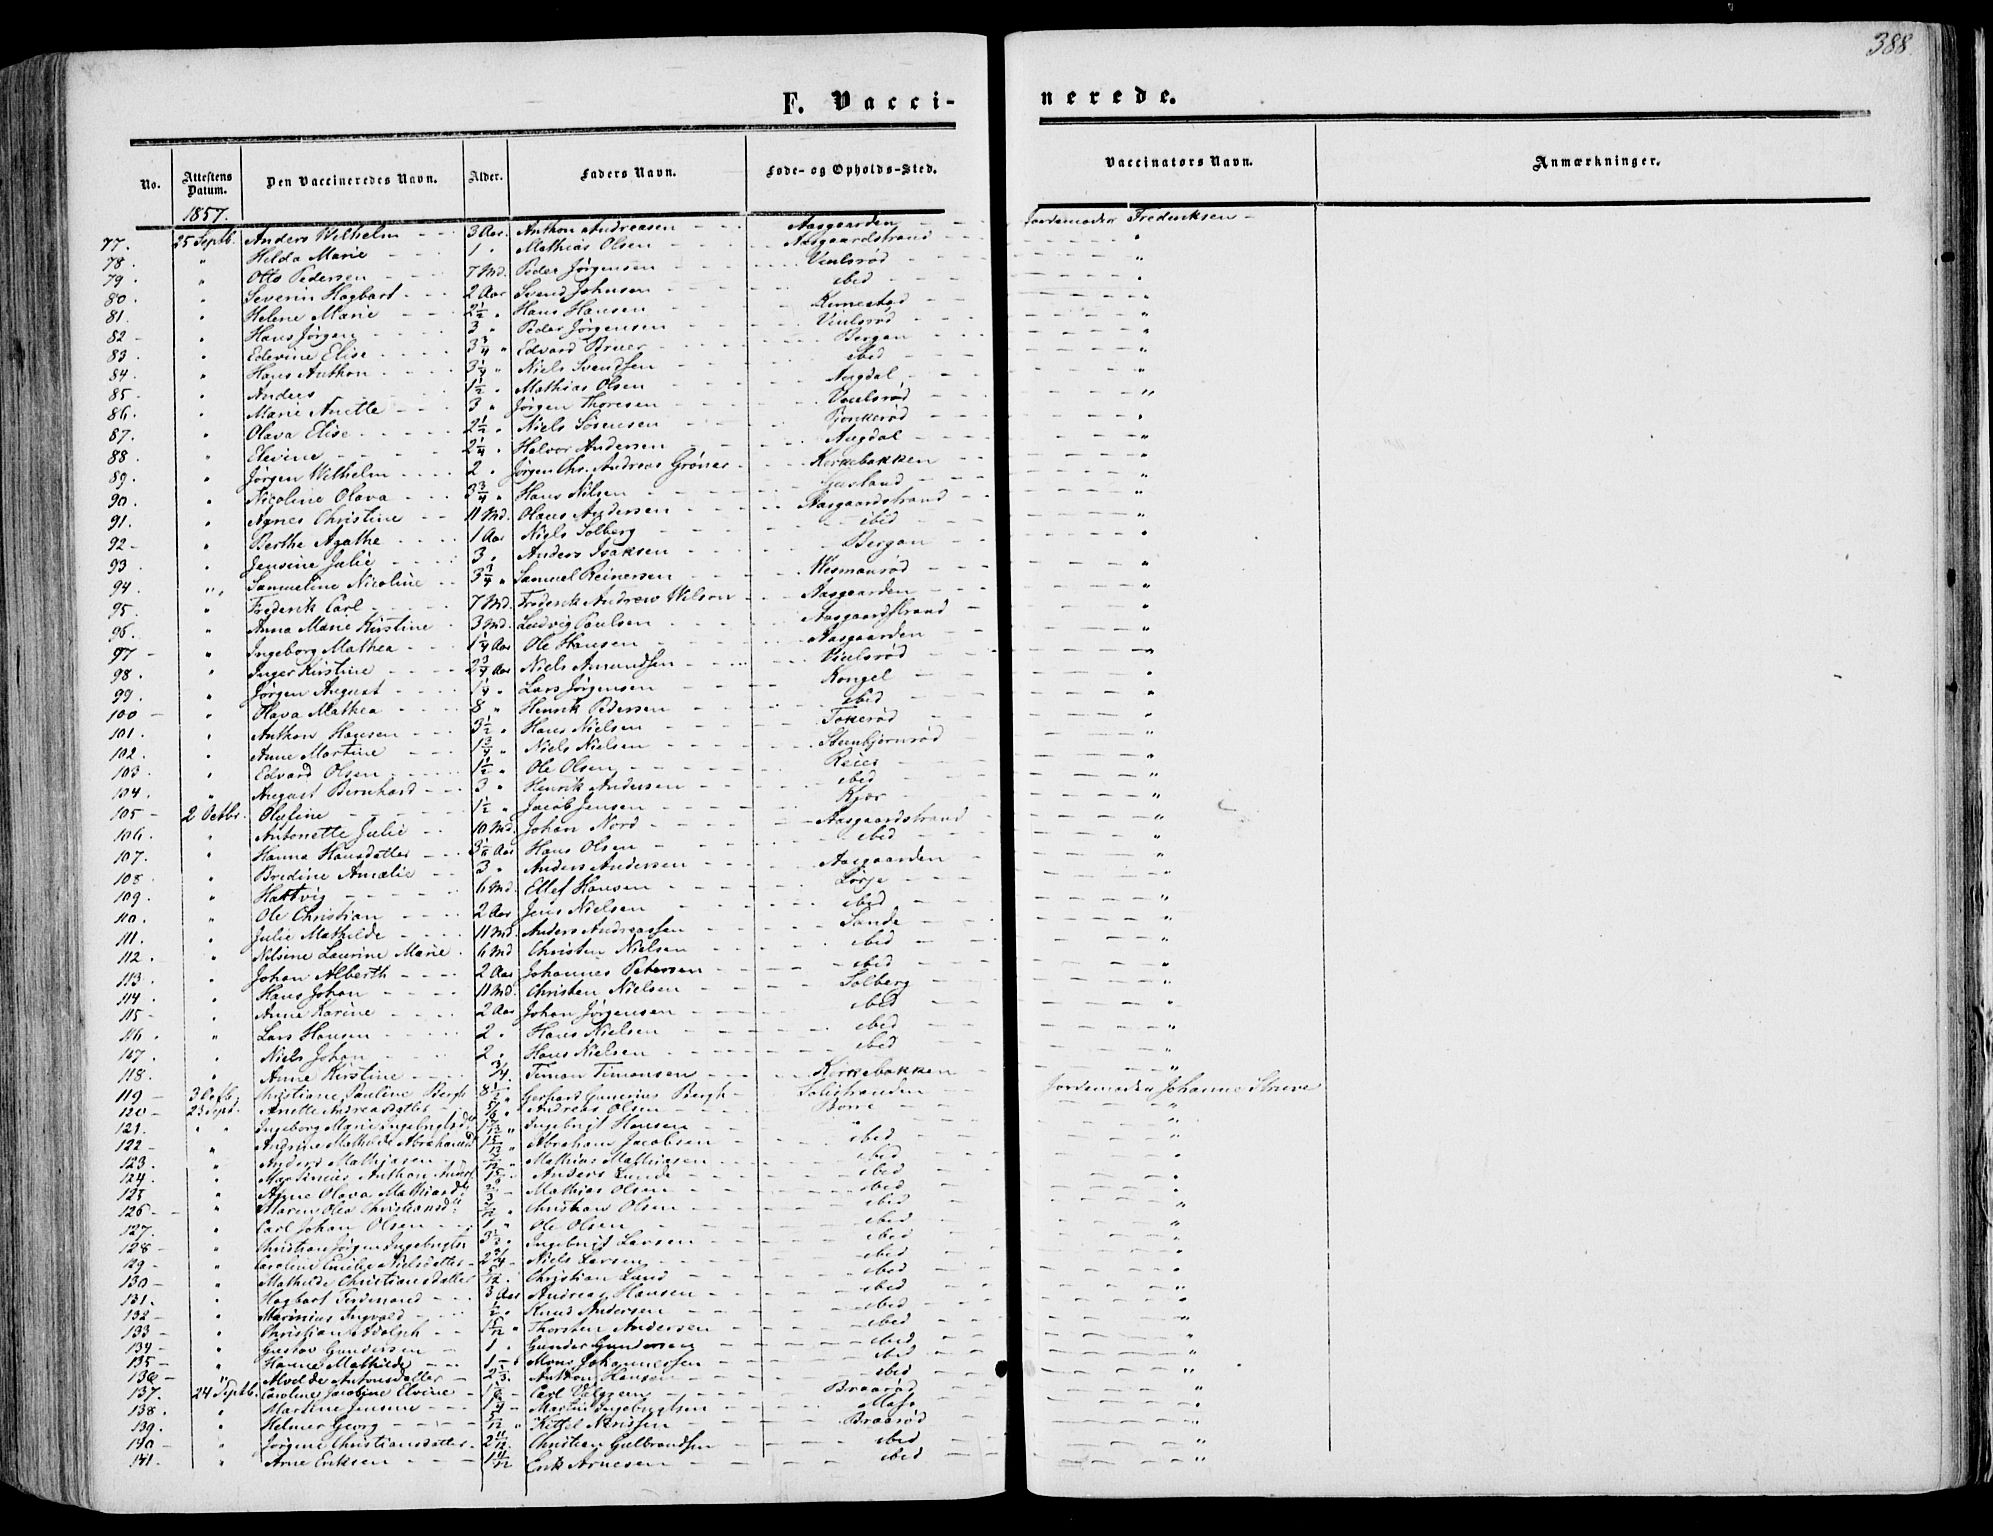 388.
F. Vacci-
nerede.
No. Attestens Datum. Den Vaccineredes Navn. Alder. Faders Navn. Føde- og Opholds-Sted. Vaccinators Navn. Anmærkninger.
1857.
77. 25 Septb. Anders Wilhelm 3 Aar. Anthon Andreasen Aasgaarden Jordemoder Frederiksen
78. " Hilda Marie 1 " Mathias Olsen Aasgaardstrand "
79. " Otto Pedersen 7 Md. Peder Jørgensen "
80. " Severin Hagbart 2 Aar Svend Johnsen ibid "
81. " Helene Marie 2½ " Hans Hansen "
82 " Hans Jørgen 3 " Peder Jørgensen "
83. " Edevine Elise 3¾ " Edvard Bruer Bergan "
84. " Hans Anthon 3¼ " Niels Svendsen ibid "
85. " Anders 1½ " Mathias Olsen Augdal "
86. " Marie Anette 3 " Jørgen Thoresen "
87. " Olava Elise 2½ " Niels Sørensen "
88. " Elevine 2¼ " Halvor Andersen Augdal "
89. " Jørgen Wilhelm 2 " Jørgen Chr. Andreas Grøner Kirkebakken "
90. " Nicoline Olava 3¾ " Hans Nilsen "
91. " Agnes Christine 11 Md. Olaus Andersen Aasgaardstrand "
92 " Berthe Agathe 1 Aar Niels Solberg ibid "
93. " Jensine Julie 3 " Anders Isaksen Bergan "
94. " Samueline Nicoline 3¾ " Samuel Reinersen "
95. " Frederik Carl 7 Md. Frederik Andrew Wilson Aasgaarden "
96. " Anna Marie Kirstine 3 Md. Ludvig Paulsen Aasgaardstrand "
97 " Ingeborg Mathea 1¼ Aar Ole Hansen Aasgaarden "
98. " Inger Kirstine 2¾ Aar Niels Amundsen "
99. " Jørgen August 1¼ " Lars Jørgensen Rongel "
100 " Olava Mathea 8 " Henrik Pedersen ibid "
101. " Anthon Hansen 3½ " Hans Nielsen Tokerød "
102. " Anne Martine 1¾ " Niels Nielsen Steinbjørnrød "
103. " Edvard Olsen 1½ " Ole Olsen Reies "
104. " August Bernhard 3 " Henrik Andersen ibid "
105 2 Octbr. Oluline 1½ " Jacob Jensen Kjær "
106. " Antonette Julie 10 Md. Johan Nord Aasgaardstrand "
107. " Hanna Hansdatter Aar Hans Olsen ibid "
108. " Bredine Amalie 3 " Anders Andersen Aasgaarden "
109. " Hartvig 6 Md. Ellef Hansen Lørje "
110. " Ole Christian 2 Aar Jens Nielsen ibid "
111. " Julie Mathilde 11 Md. Anders Andreassen Sande "
112. " Nilsine Laurine Marie 6 Md Christen Nielsen ibid "
113. " Johan Alberth 2 Aar Johannes Petersen ibid "
114. " Hans Johan 11 Md. Christen Nielsen Solberg "
115 " Anne Karine 2 Aar Johan Jørgensen ibid "
116. " Lars Hansen 2 " Hans Nielsen ibid "
117. " Niels Johan 2 " Hans Nielsen ibid "
118. " Anne Kirstine ¾. Timan Timansen Kirkebakken "
119 3 Octb. Christiane Pauline Bergh 8½ Gerhard Gunerius Bergh Jordemoder Johanne Struve
120 23 Sept. Anette Andreasdatter Andreas Olsen Borre "
121. " Ingeborg Marie Ingebrigtsd. Ingebrigt Hansen " "
122 " Andrine Mathilde Abrahamsd. Abraham Jacobsen ibid "
123. " Anders Mathiasen Mathias Mathiasen ibid "
124. " Martinius Anthon Anders. Anders Lunde ibid "
125 " Anne Olava Mathiasd. Mathias Olsen ibid "
126 " Maren Olea Christiansd. Christian Olsen ibid "
127. " Carl Johan Olsen 1 " Ole Olsen ibid "
128 " Christian Jørgen Ingebrigts. 3½ Ingebrigt Larsen ibid "
129 " Caroline Emilie Nielsdatter 2¾ Niels Larsen ibid "
130 " Mathilde Christiansdatter Christian Lund ibid "
131. " Hagbart Ferdinand 3 Aar Andreas Hansen ibid "
132 " Marinius Ingvald ½ " Knud Andersen ibid "
133 " Christian Adolph Thorsten Andersen ibid "
134 " Gustav Gundersen 1 " Gunder Gundersen ibid "
135 " Hanne Mathilde 1 Mons Johannessen ibid "
136 " Antonsdatter Anthon Hansen ibid "
137. 24 Septb. Caroline Jacobine Elvine Carl Braarød "
138. " Martine Jensine Martin Ingebrigtsen "
139. " Helmer Georg Kittel Nerissen Braarød "
140 " Jørgine Christiansdatter Christian Gulbrandsen ibid "
141. " Arne Eriksen Erik Arnesen ibid "